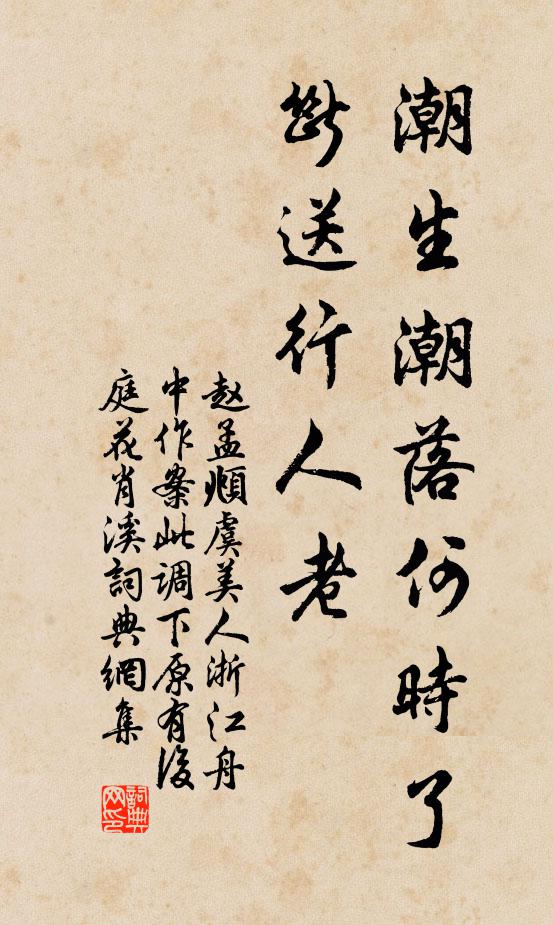 潮生潮落何時了
斷送行人老
赵孟頫虞美人浙江舟
中作案此调下原有後
庭花肖溪詞典網集
詞典
网印